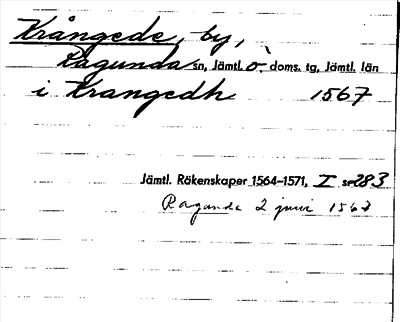 Krångede, by,
Ragunda sn, Jämtl. ö. doms. tg, Jämtl. län
i Krangedh 1567
Jämtl. Räkenskaper 1564-1571, I s 283
Ragunda 2 juni 1567